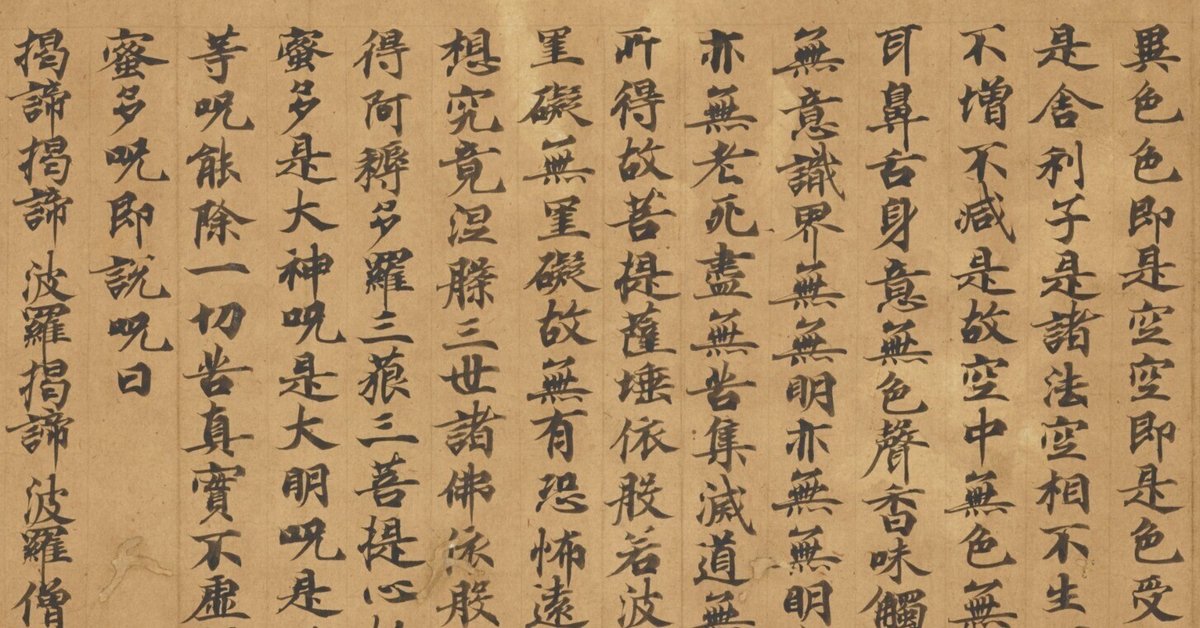 異色色即是空空即是色受
是舍利子是諸法空相不生
不增不減是故空中無色無
耳鼻舌身意無色聲香味觸
無意識界無無明亦無無明
亦無老死盡無苦集滅道無
所得故菩提薩埵依般若波
罣礙無罣礙故無有恐怖遠
想究竟涅槃三世諸佛依般
得阿耨多羅三藐三菩提心
蜜多是大神呪是大明呪是
等呪能除一切苦真實不虛
蜜多呪即說呪曰
揭諦揭諦 波羅揭諦 波羅僧